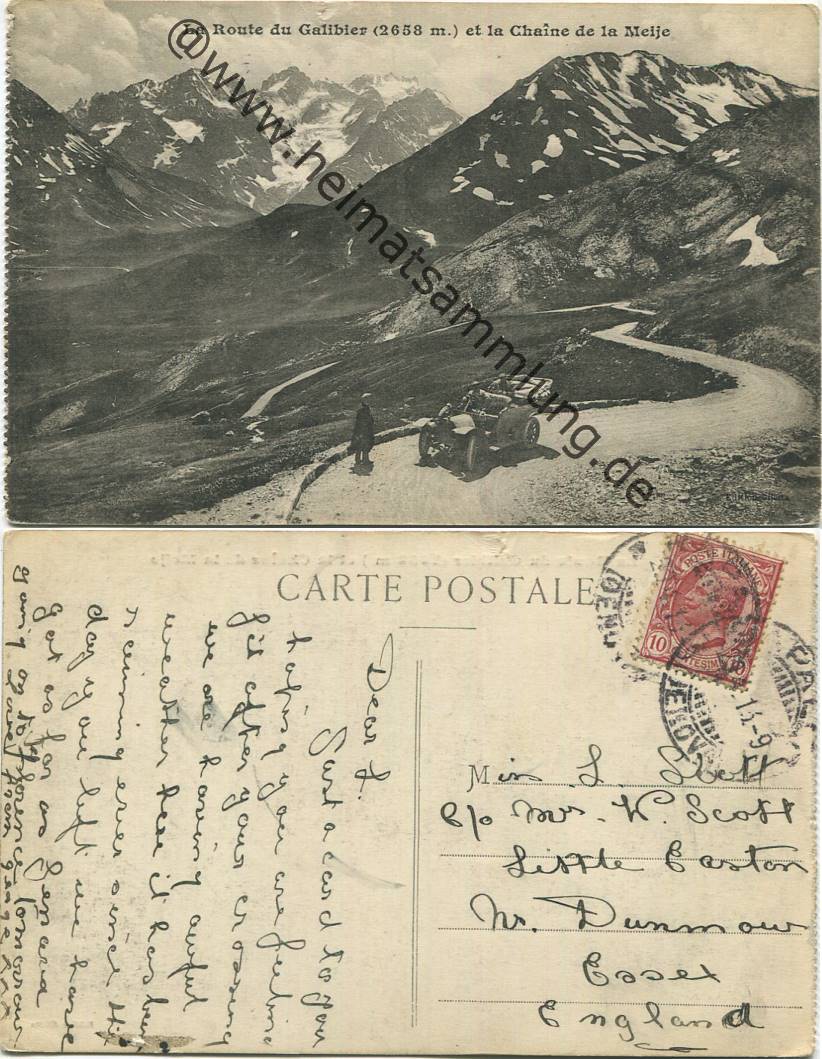 La Route du Galibier (2658 m.) et la Chaîne de la Meije
@www.heimatsammlung.de
CARTE POSTALE
POSTE ITALIANE
10
Dear L.
Just a card to you
hoping you are feeling
fit after your crossing
we are having awful
weather here it has been
raining ever since the
day you left we have
got as far as Genova
going on to Florence tomorrow
love from
Miss L. Scott
c/o Mrs. W. Scott
Little Easton
Nr. Dunmow
Essex
England